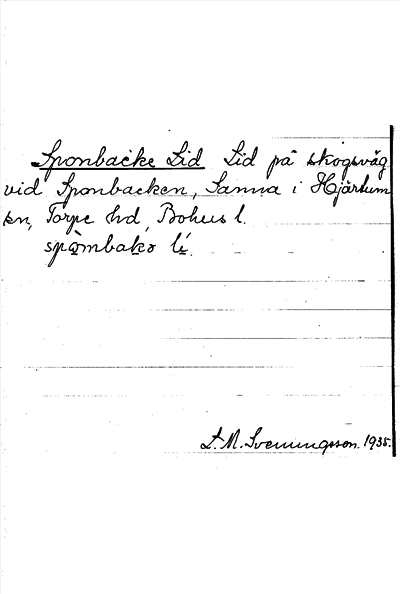 Sponbacke Lid Lid på skogsväg
vid Sponbacken, Sanna i Hjärtum
sn, Torpe hd, Bohus l.
spòmbakə lí.
S. M. Svenungsson. 1935.